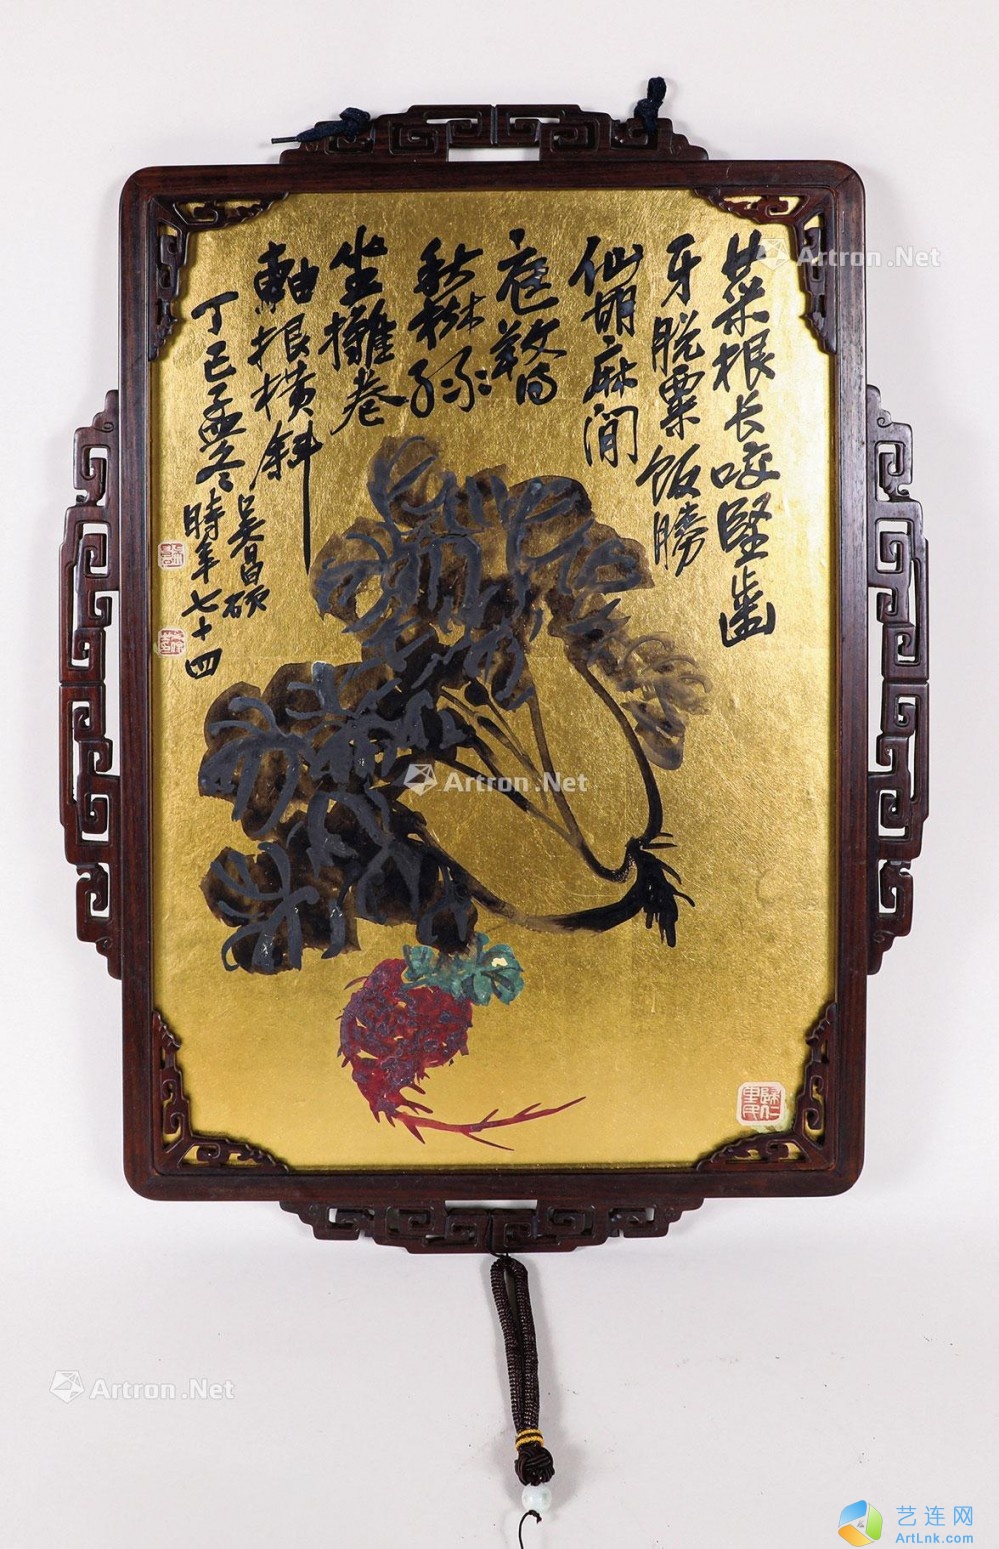 菜根长咬坚齿
牙脱粟饭胜
仙胡麻闲
庭
秋林绿
坐摊卷
轴根横斜
丁巳孟冬
吴昌硕
時年七十四
Artron.Net
Artron.Net
Artron.Net
艺连网
ArtLnk.com